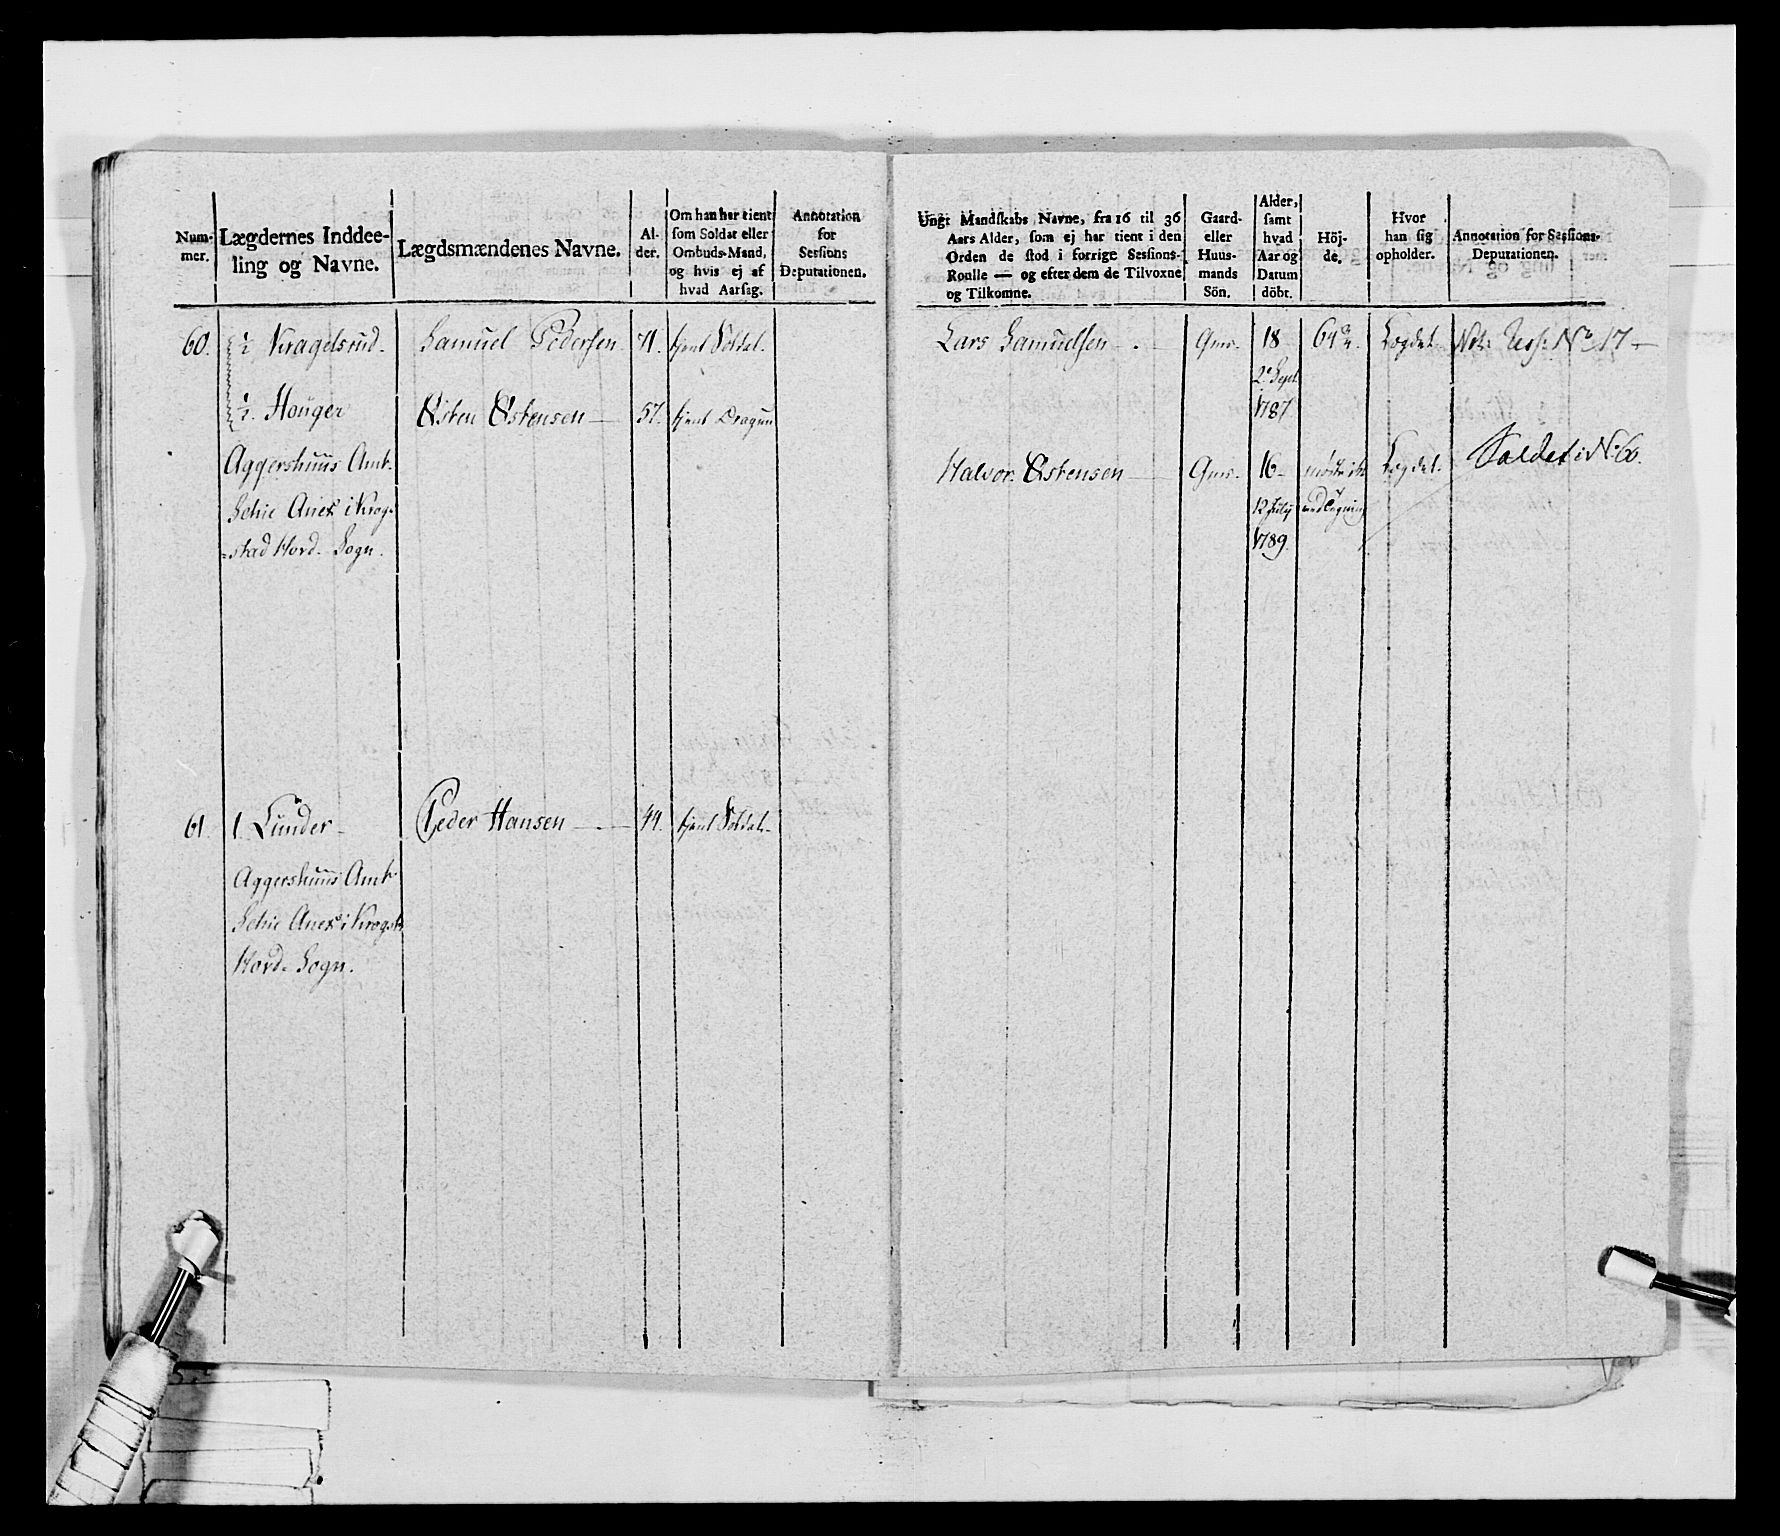 Num-
mer.
Lægdernes Inddee-
ling og Navne.
Lægdsmændenes Navne.
Al-
der.
Om han har tient
som Soldat eller
Ombuds-Mand,
og hvis ej af
hvad Aarsag.
Annotation
for
Sessions
Deputationen.
60.
½ Kragelsrud.
Samuel Pedersen
71.
tjent Soldat.
½. Houger
Østen Østensen
57.
tjent Dragun
Aggershuus Amt.
Schie Anex i Krog-
stad Hovd. Sogn.
61
1. Lunder
Peder Hansen
44.
tjent Soldat.
Aggershuus Amt
Schie Anex i Krogst.
Hovd. Sogn.
Ungt Mandskabs Navne, fra 16 til 36
Aars Alder, som ej har tient i den
Orden de stod i forrige Sessions-
Roulle — og efter dem de Tilvoxne
og Tilkomne.
Gaard-
eller
Huus-
mands
Sön.
Alder,
samt
hvad
Aar og
Datum
döbt.
Höj-
de.
Hvor
han sig
opholder.
Annotation for Sessions-
Deputationen.
Lars Samuelsen
Gmr.
18
Lægdet
No 17
2 Sept
1787
Halvor Østensen
Gmr.
16
Lægdet.
Soldat i No 60.
12 July
1789.